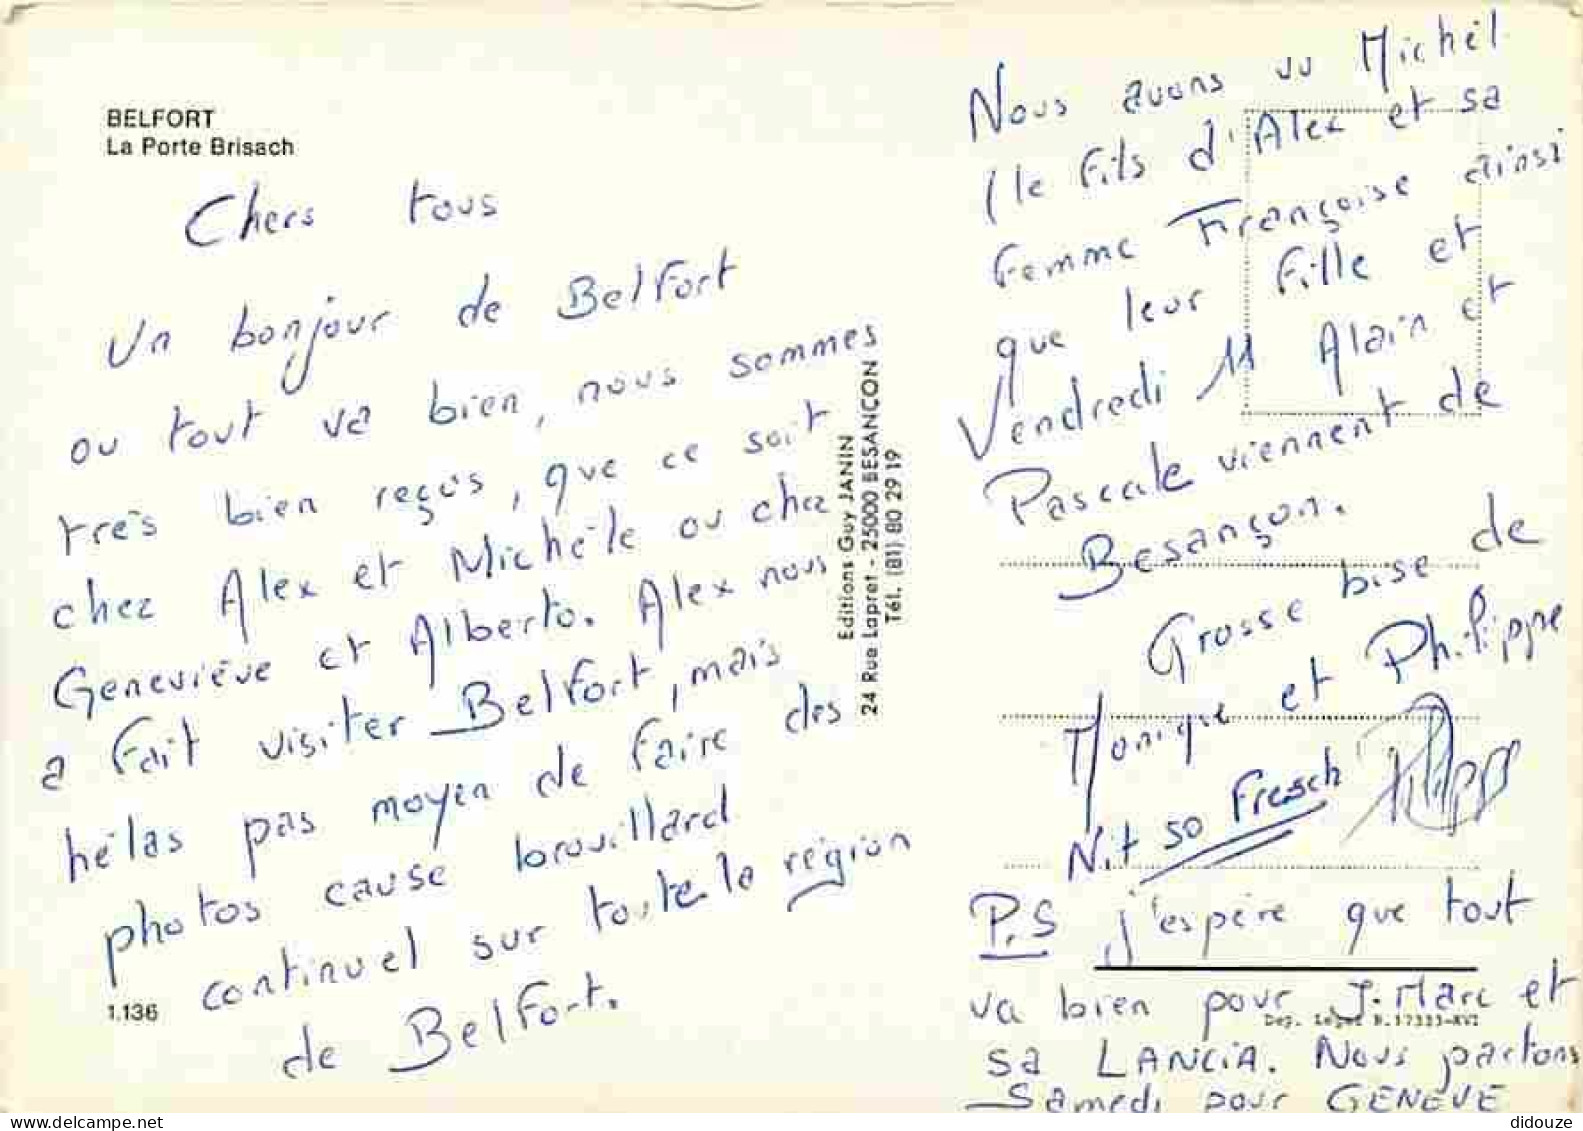 BELFORT
La Porte Brisach
Chers tous
Un bonjour de Belfort
ou tout va bien, nous sommes
très bien reçus, que ce soit
chez Alex et Michèle ou chez
Geneviève et Alberto. Alex nous
a fait visiter Belfort, mais
hélas pas moyen de faire des
photos cause brouillard
continuel sur toute la région
de Belfort.
1.136
Editions Guy JANIN
24 Rue Lapret - 25000 BESANCON
Tél. (81) 80 29 19
Nous avons vu Michel
(le fils d'Alex et sa
femme Françoise ainsi
que leur fille et
Vendredi 11 Alain et
Pascale viennent de
Besançon.
Grosse bise de
Monique et Philippe
Nit so Fresch
P.S j'espère que tout
va bien pour J.Marc et
Dep. Legal
sa LANCIA. Nous partons
Samedi pour GENEVE
didouze